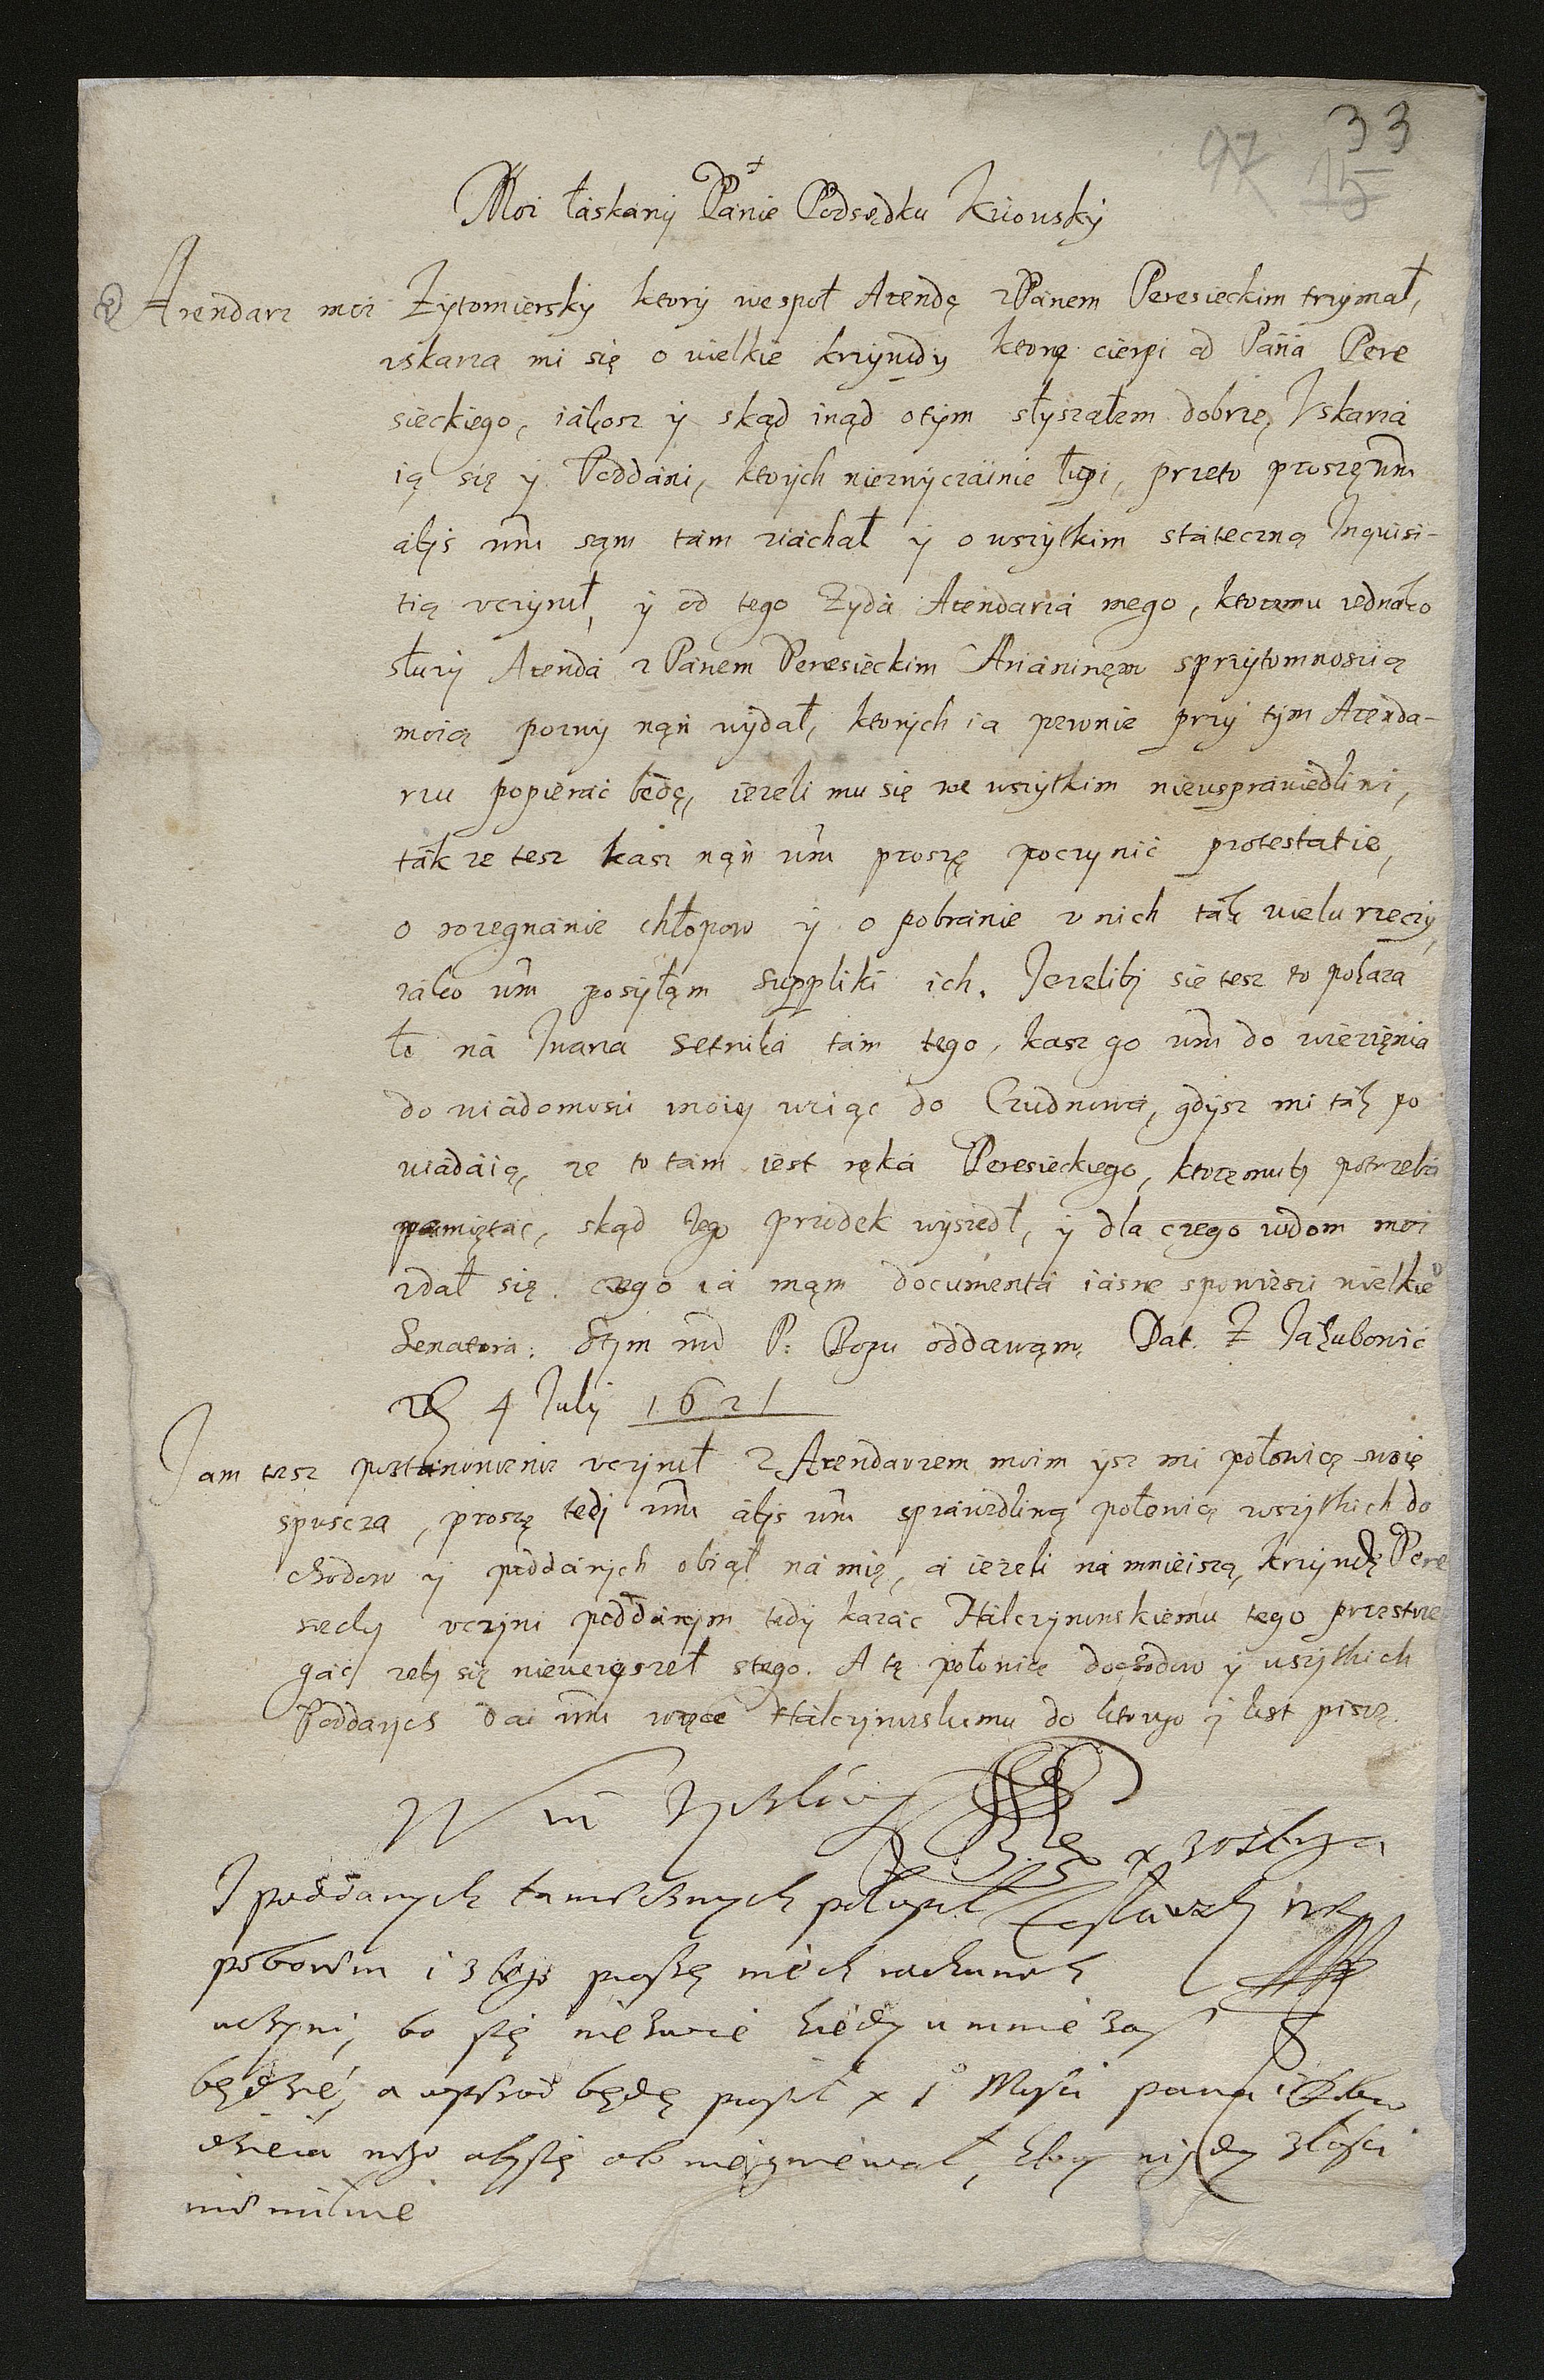 33
97 15
Moi łáskawy Pánie Podsędku Kiiowsky
Arendarz moi Żytomiersky ktory wespoł Arendę z Pánem Peresieckim trzymał,
vskarża mi się o wielkie krzywdy ktorę cierpi od Páná Pere
sieckiego, iákosz y skąd inąd o tym słyszałem dobrze, Vskarżá
ią się y Poddáni, ktorych niezwyczáinie łupi, przeto proszę wm
ábys wm sąm tám ziáchał y o wszytkim státeczną Inquisi-
tią vczynił, y od tego Żydá Arendarzá mego, ktoremu iednáko
służy Arendá z Pánem Peresieckim Ariáninęm s przytomnoscią
moią pozwy nąń wydał, ktorych ia pewnie przy tym Arenda-
rzu popieráć będę, ieżeli mu się we wszytkim nieuspráwiedliwi,
ták że tesz kasz nąń wm proszę poczynić protestatie,
o rozegnánie chłopow y o pobránie v nich ták wielu rzeczy,
iáko wm posyłąm suppliki ich. Jezeliby sie tesz to pokaza
ło ná Iwaná setniká tám tego, kasz go wm do więzięnia
do wiádomosci moięy wziąć do Cudnowá, gdysz mi ták po
wiádáią, że to tám iest ręká Peresieckiego, ktoręmuby potrzebá
pamiętać, skąd iego przodek wyszedł, y dla czego w dom moi
zdał się. czego iá mąm documentá iásne s powieści wielkieo
Senatorá. Stym wm P. Bogu oddawąm. Dat. Z Jakubowic
4 July 1621
Jam tesz postanowienie vczynił z Arendarzem moim ysz mi połowicę swoię
spuscza, proszę tedy wm ábys wm spráwiedliwą połowicę wszytkich do
chodow y poddánych obiął ná mię, á ieżeli námnieiszą krzywdę Pere
siecky vczyni poddánym tedy kazáć Hálczynowskiemu tego przestrze
gáć żeby się nie s tego. A tę połowicę dochodow y wszytkich
Poddanych dai wm w ręce Hálczynowskiemu do ktorego y list piszę.
W m życzliwy
I poddanych tamecznych połupił
poborem i z tego proszę niech rachunek
uczyni, bo się nie kiedy u mnie
będzie, a będę prosił x Mości pana
aby się o to nie gniewał, ktory nigdy złości
nie miłuie